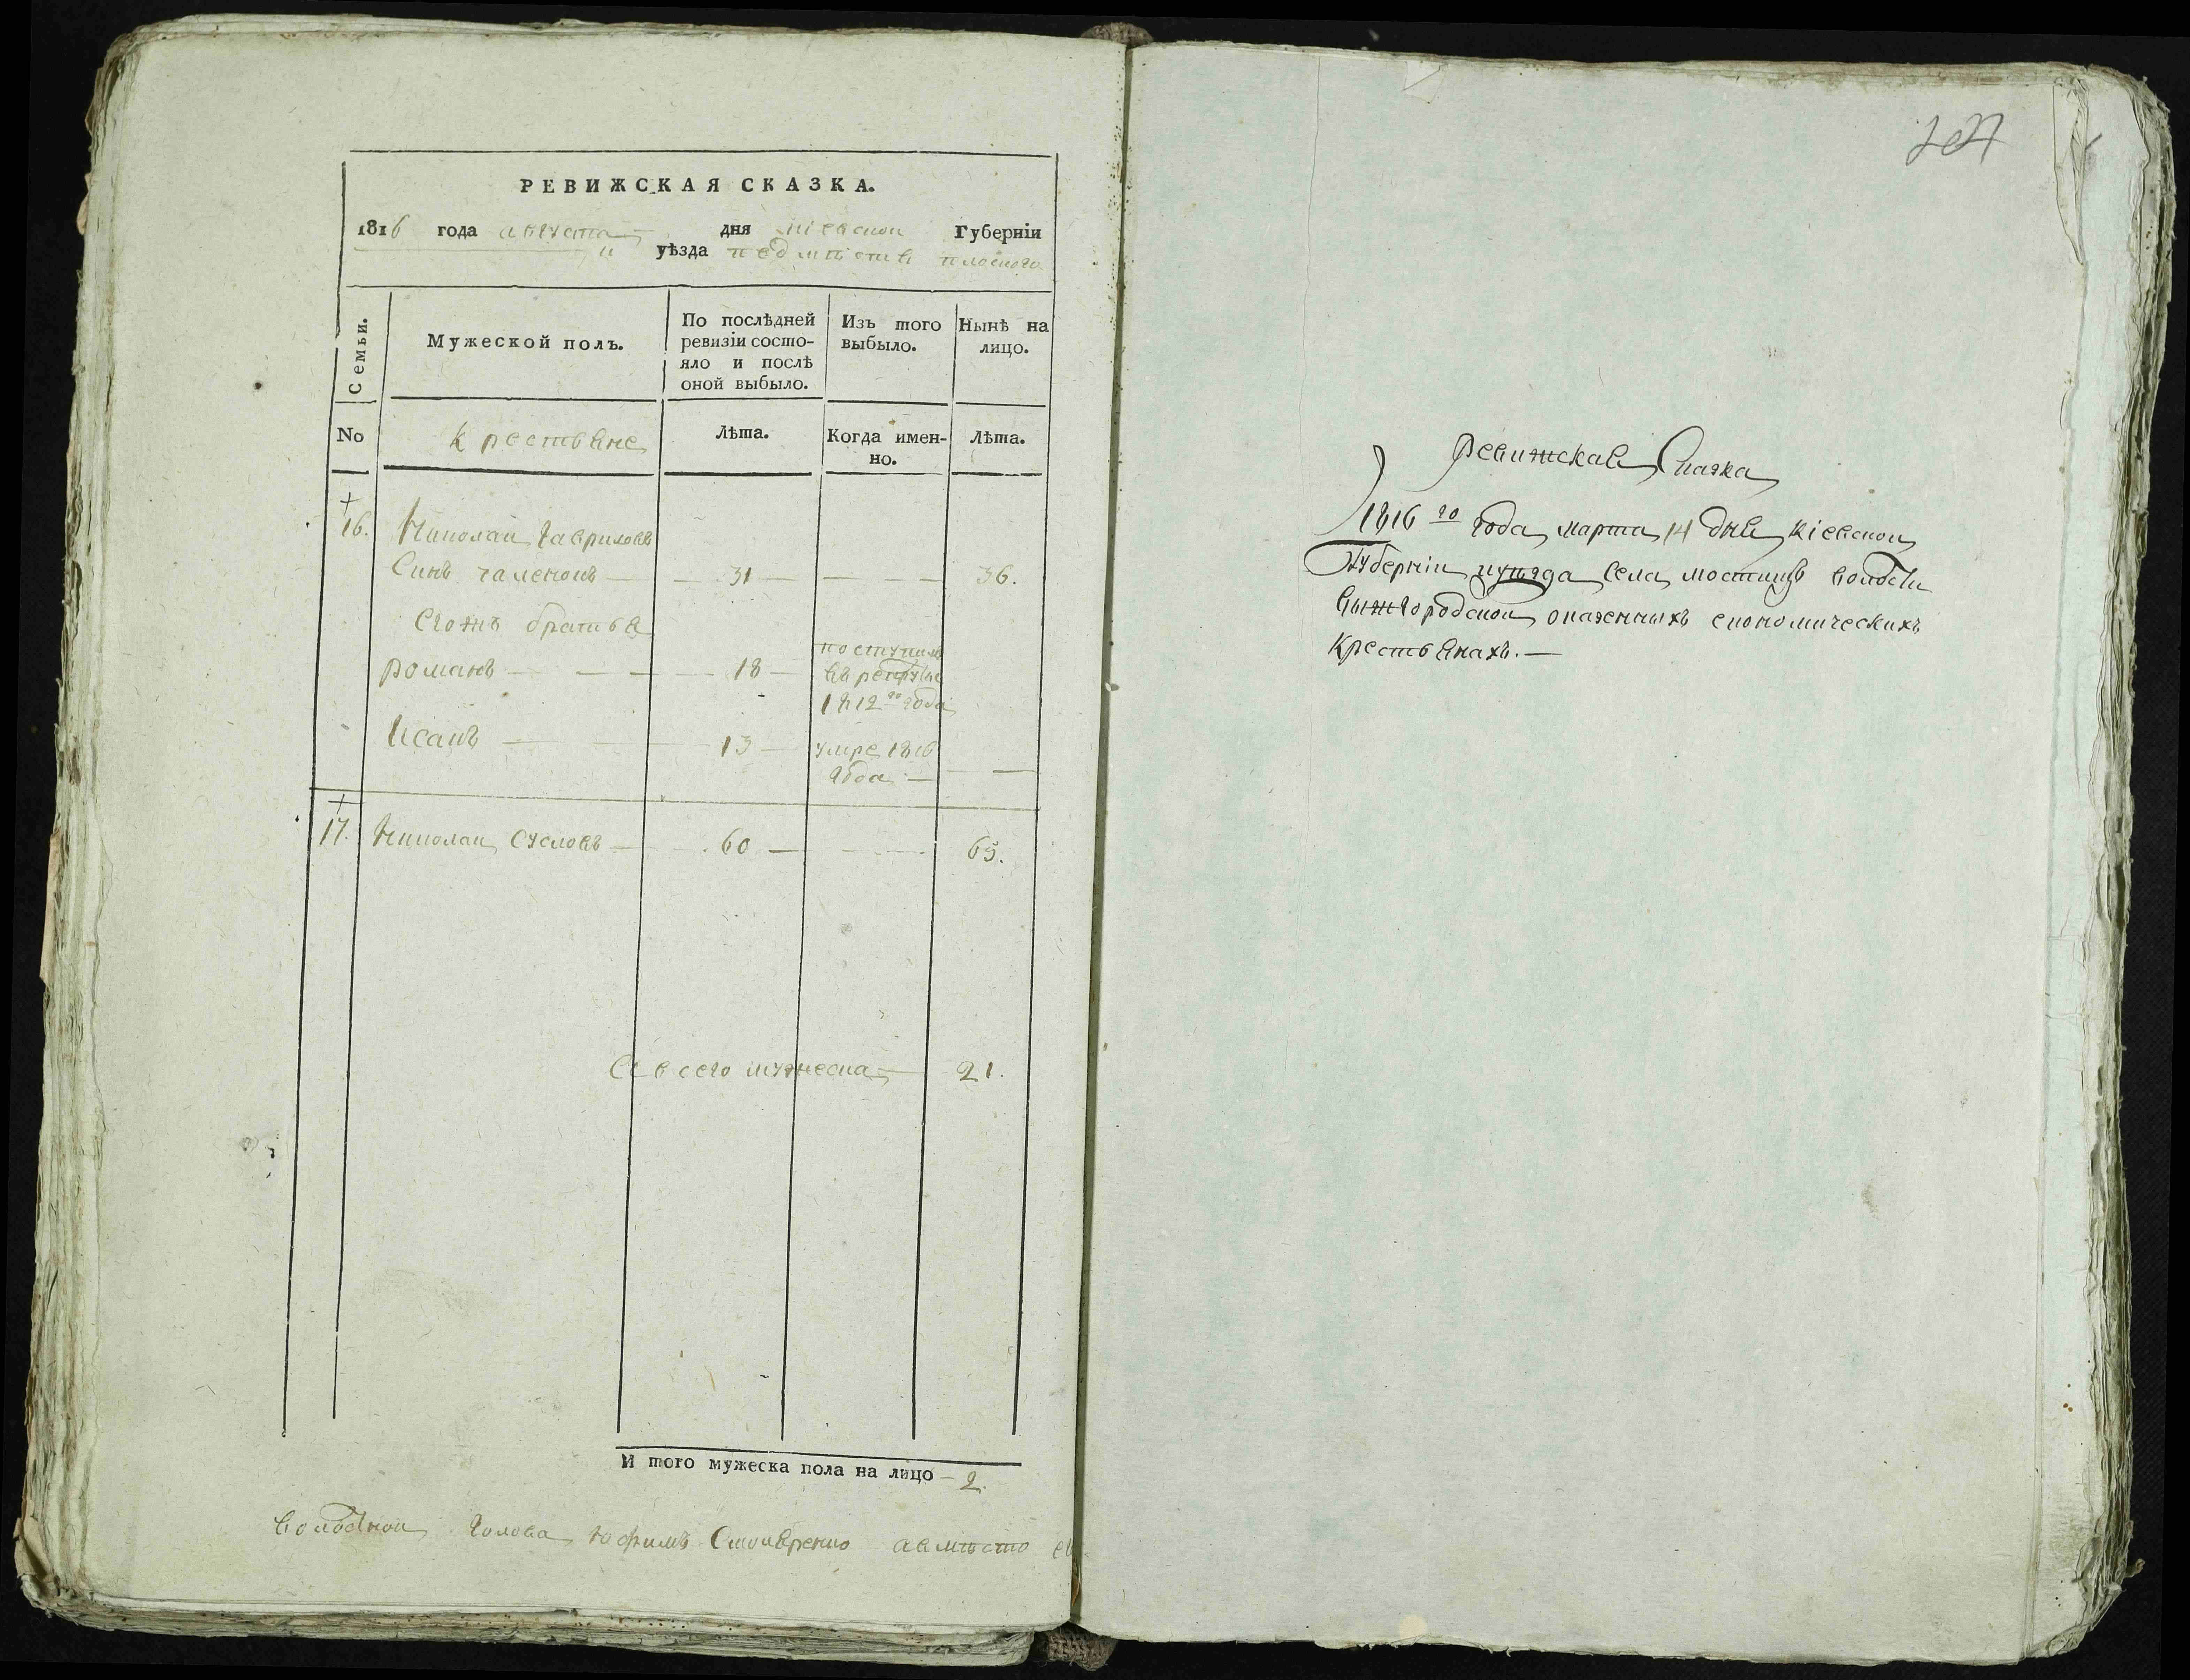 РЕВИЖСКАЯ СКАЗКА.
1816 года августа дня киевскои Губерніи
и уѣзда предмѣстя плоского
Семьи.
Мужеской полъ.
По послѣдней ревизіи состояло и послѣ оной выбыло.
Изъ того выбыло.
Нынѣ на лицо.
No
крестьяне
Лѣта.
Когда именно.
Лѣта.
16. Николаи Гавриловъ
Синъ 31 36.
Егожъ братья
романъ 18 поступилъ
въ рекруты
1812го года
Исаиъ 13 умре 1816
года
17. Николаи Сусловъ 60 65.
всего мужеска 21.
И того мужеска пола на лицо 2.
волостнои Голова юфимъ Столяренко авмѣсто ег
Ревижская Сказка
1816го года марта 14 дня киевскои
Губерніи иуѣзда Села мостищъ волости
вижгородскои оказенныхъ економическихъ
крестьянахъ.